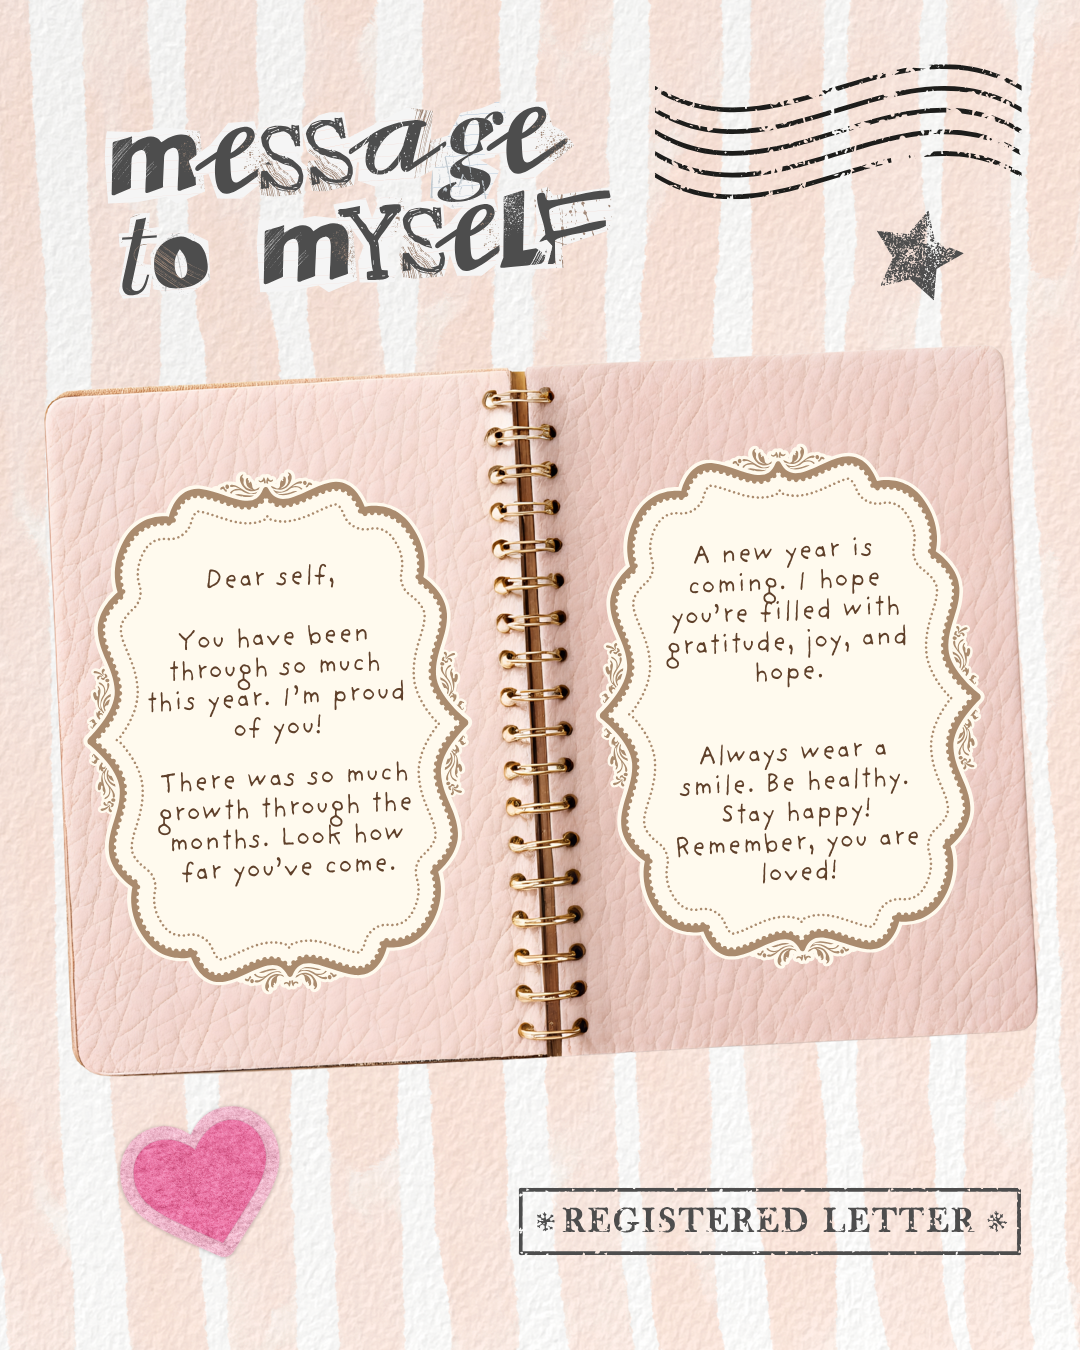 message
to myself
Dear self,
You have been
through so much
this year. I'm proud
of you!
There was so much
growth through the
months. Look how
far you've come.
A new year is
coming. I hope
you're filled with
gratitude, joy, and
hope.
Always wear a
smile. Be healthy.
Stay happy!
Remember, you are
loved!
REGISTERED LETTER